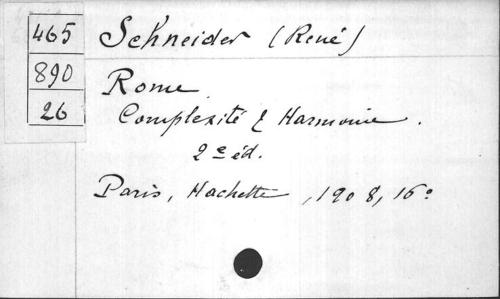 465
890
26
Schneider (René)
Rome
Complexité & Harmonie.
2e éd.
Paris, Hachette, 1908, 16°